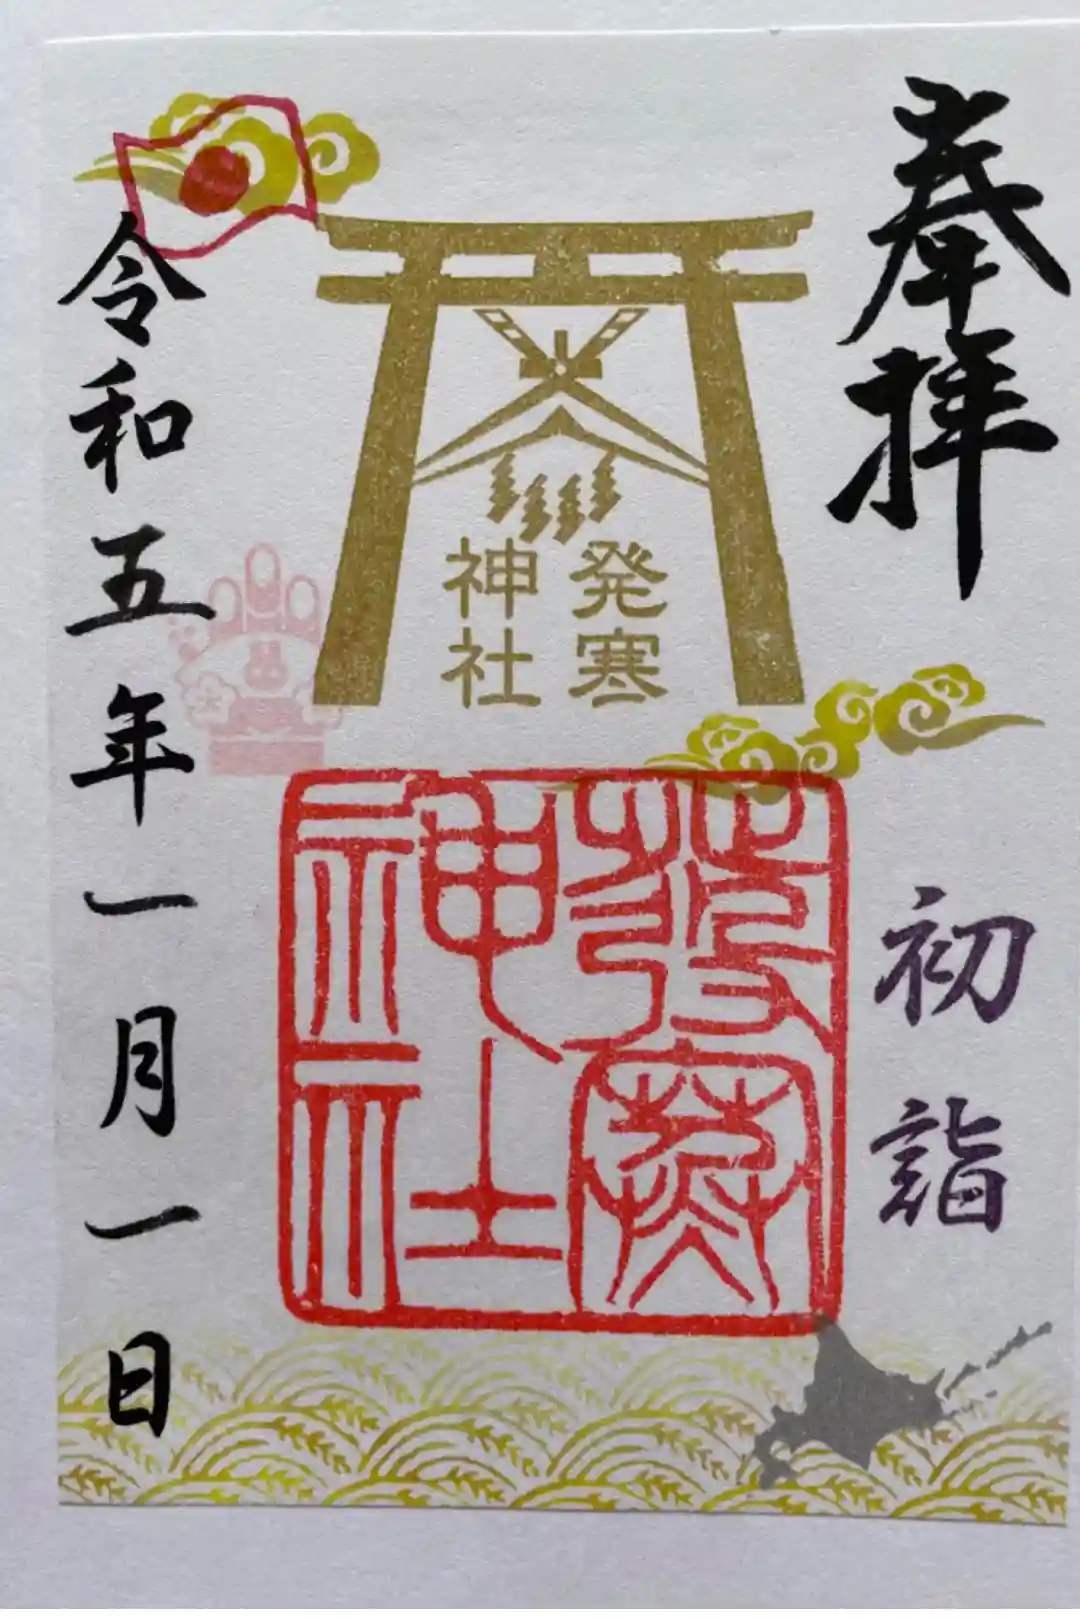 奉拝
初詣
発寒
神社
発寒
神社
令和五年一月一日